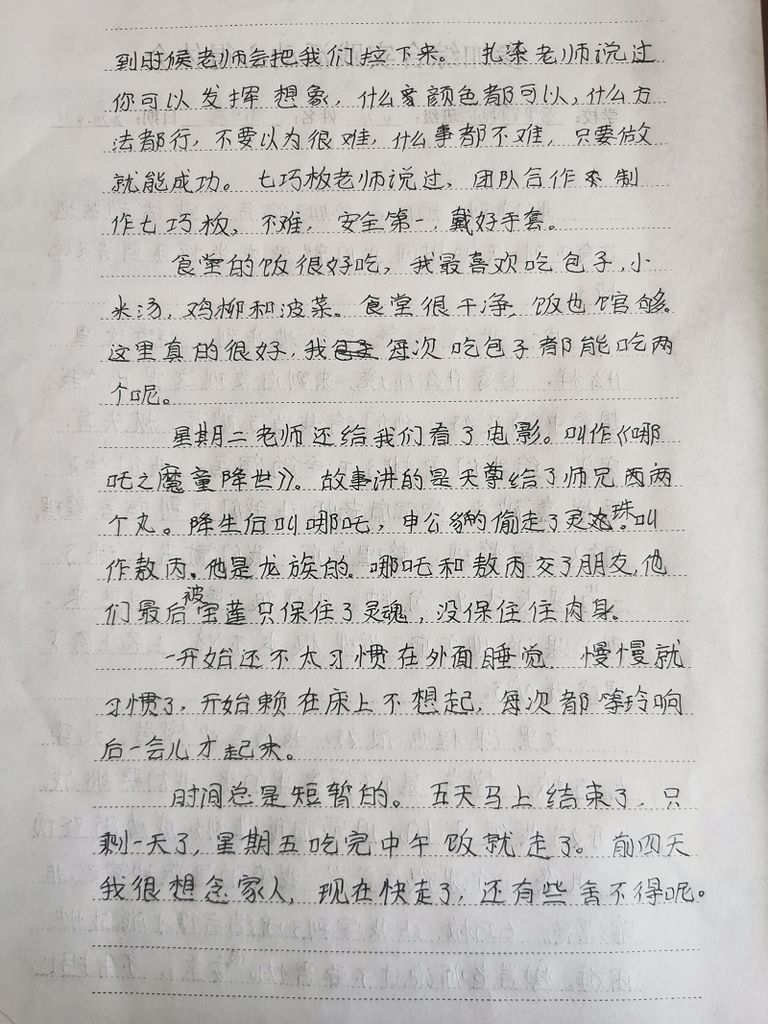 到时候老师会把我们拉下来。扎染老师说过
你可以发挥想象，什么颜色都可以，什么方
法都行，不要以为很难，什么事都不难，只要做
就能成功。七巧板老师说过，团队合作来制
作七巧板，不难，安全第一，戴好手套。
食堂的饭很好吃，我最喜欢吃包子，小
米汤，鸡柳和波菜。食堂很干净，饭也管够。
这里真的很好，我每次吃包子都能吃两
个呢。
星期二老师还给我们看了电影。叫作《哪
吒之魔童降世》。故事讲的是天尊给了师兄两
个丸。降生后叫哪吒，申公豹的偷走了灵珠。叫
作敖丙。他是龙族的。哪吒和敖丙交了朋友，他
们最后被宝莲只保住了灵魂，没保住住肉身。
一开始还不太习惯在外面睡觉，慢慢就
习惯了，开始赖在床上不想起，每次都等玲响
后一会儿才起来。
时间总是短暂的。五天马上结束了，只
剩一天了，星期五吃完中午饭就走了。前四天
我很想念家人，现在快走了，还有些舍不得呢。